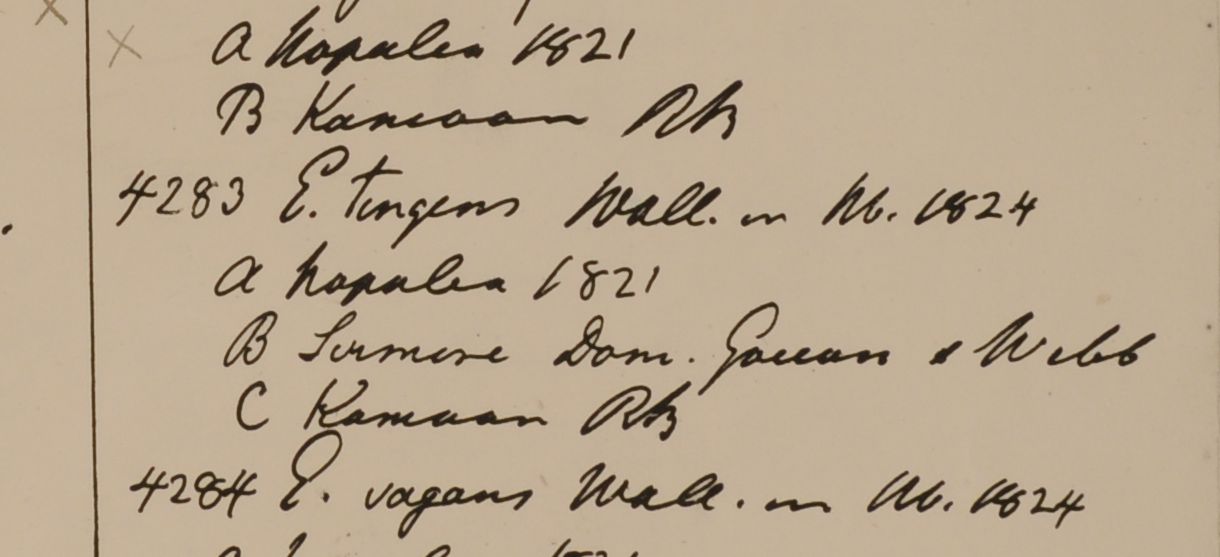 A Napalia 1821
B Kamaoon RB
4283 E. tingens Wall. in Hb. 1824
A Napalia 1821
B Sirmore Dom. Govan & Webb
C Kamaon RB
4284 E. vagans Wall. in Hb. 1824